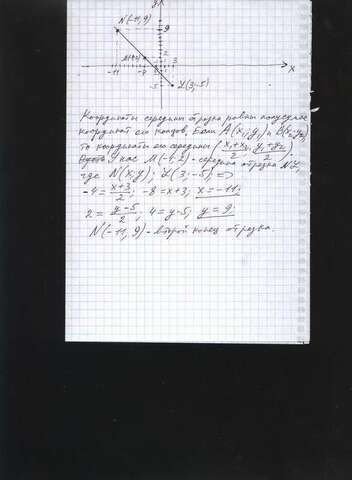 y
N(-11,9)
9
M(-4;2)
2
-11 -4 3 x
-5 L(3;-5)
Координаты середины отрезка равны полусумме
координат его концов. Если A(x₁;y₁) и B(x₂;y₂)
то координаты его середины (x₁+x₂/2; y₁+y₂/2)
У нас M(-4;2) - середина отрезка NL,
где N(x;y); L(3;-5) =>
-4 = x+3/2; -8=x+3; x=-11;
2 = y-5/2; 4=y-5; y=9;
N(-11,9) - второй конец отрезка.